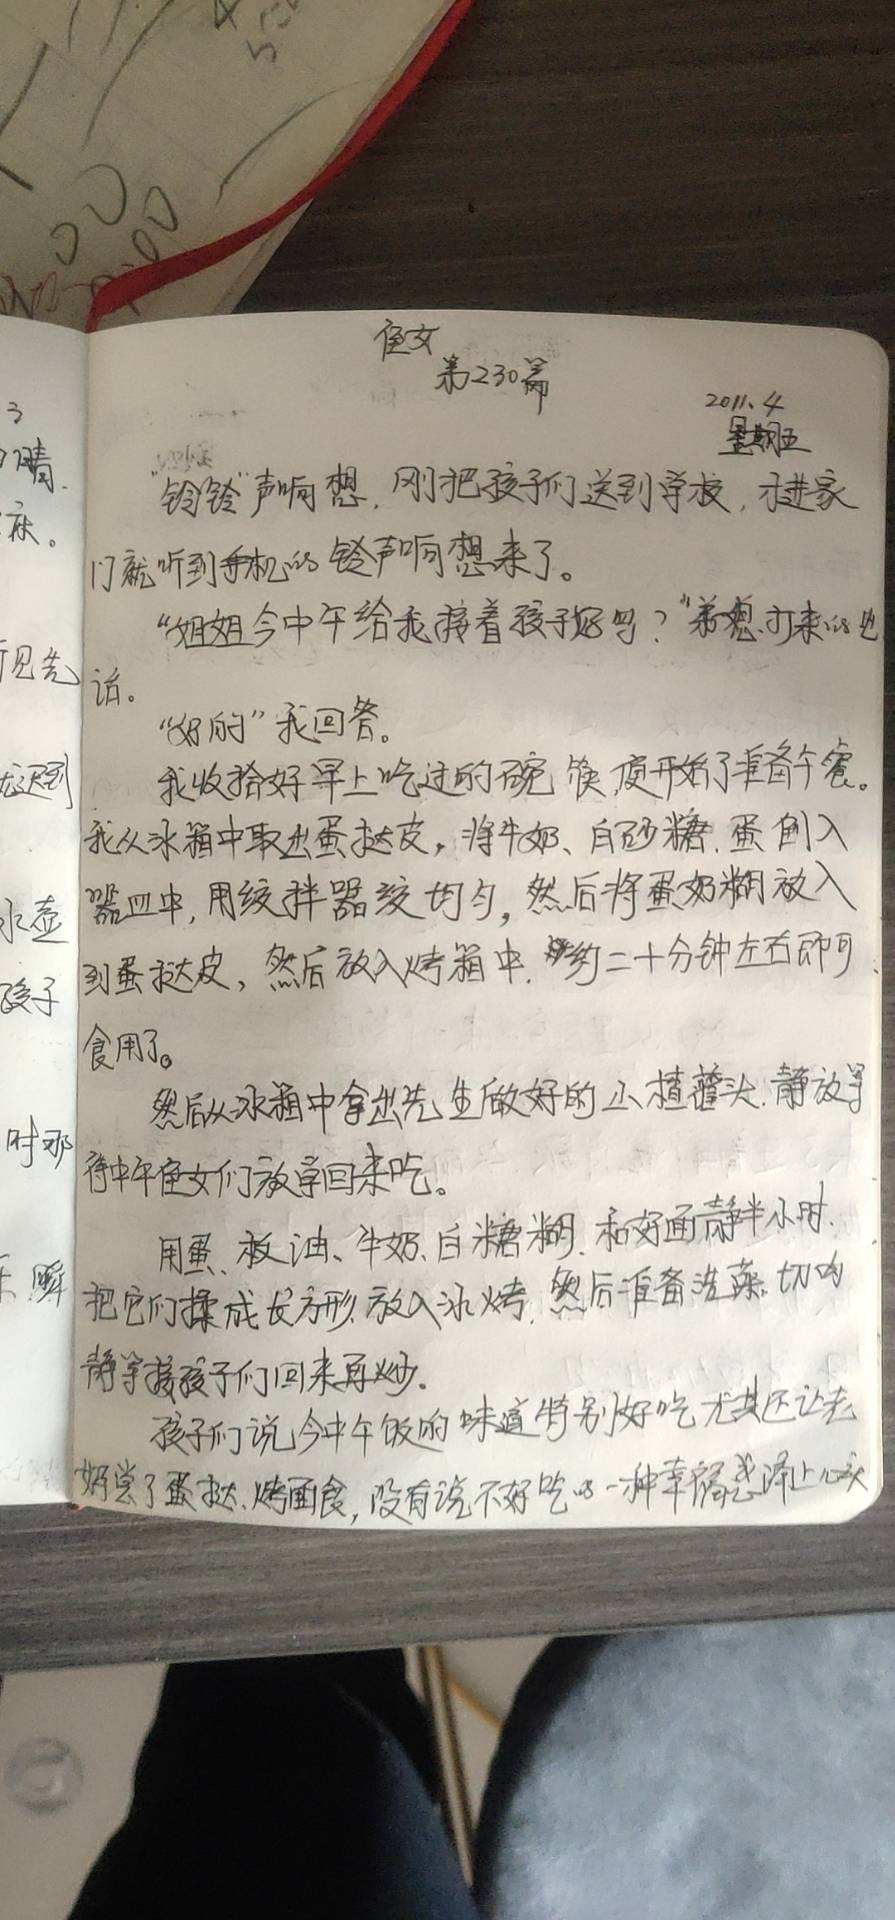 侄女
第230篇
2011.4
星期五
"铃铃"声响想,刚把孩子们送到学校,才进家
门就听到手机的铃声响想来了。
"姐姐今中午给我接着孩子好吗?"弟想打来的电
话。
"好的"我回答。
我收拾好早上吃过的碗筷,便开始了准备午餐。
我从冰箱中取出蛋挞皮,将牛奶、白砂糖、蛋倒入
器皿中,用绞拌器绞均匀,然后将蛋奶糊放入
到蛋挞皮,然后放入烤箱中,约二十分钟左右即可
食用了。
然后从冰箱中拿出先生做好的小馒头,静放等
待中午侄女们放学回来吃。
用蛋、板油、牛奶、白糖糊,和好面静半小时,
把它们揉成长方形,放入冰烤,然后准备洗菜,切肉
静等接孩子们回来再炒。
孩子们说今中午饭的味道特别好吃尤其还让
妈尝了蛋挞、烤面食,没有说不好吃的一种幸福感
3
晴
床。
见先
迟到
水壶
孩子
时那
瞬